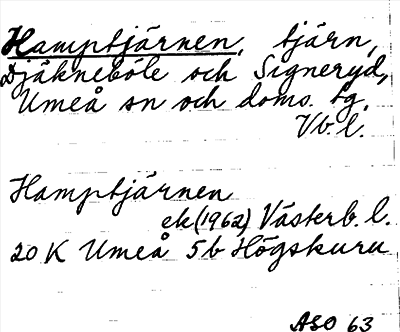 Hamptjärnen, tjärn,
Djäkneböle och Signeryd,
Umeå sn och doms. tg.
Vb. l.
Hamptjärnen
ek (1962) Västerb. l.
20 K Umeå 5b Högskuru
ASO 63